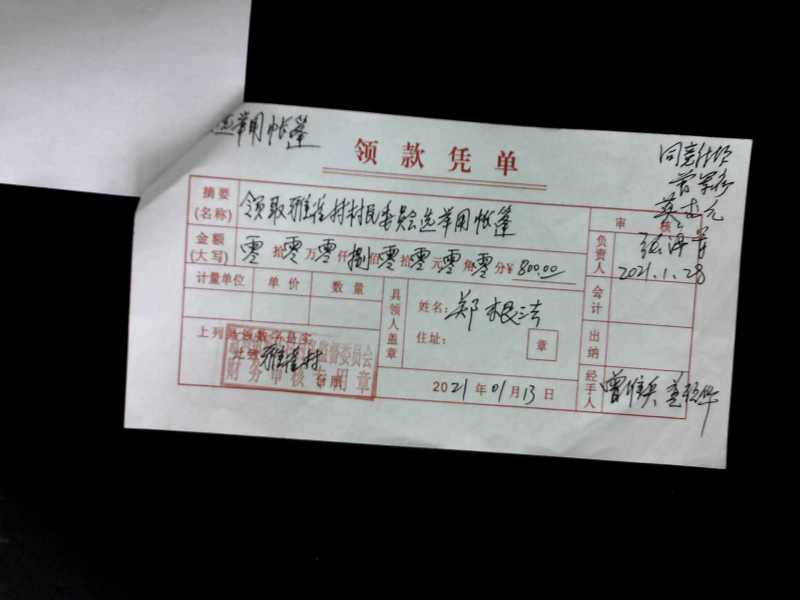 选举用帐篷
领款凭单
同意付坝
摘要
(名称)
领取雅雀村村民委员会选举用帐篷
审核
金额
(大写)
零拾零万零仟捌佰零拾零元零角零分¥800.00
负责人
2021.1.28
计量单位 单价 数量
会计
具领人盖章
姓名:郑根法
住址:
章
上列款领数字是实
此缴雅雀村
监督委员会
财务审核专用章
出纳
经手人
2021年01月13日